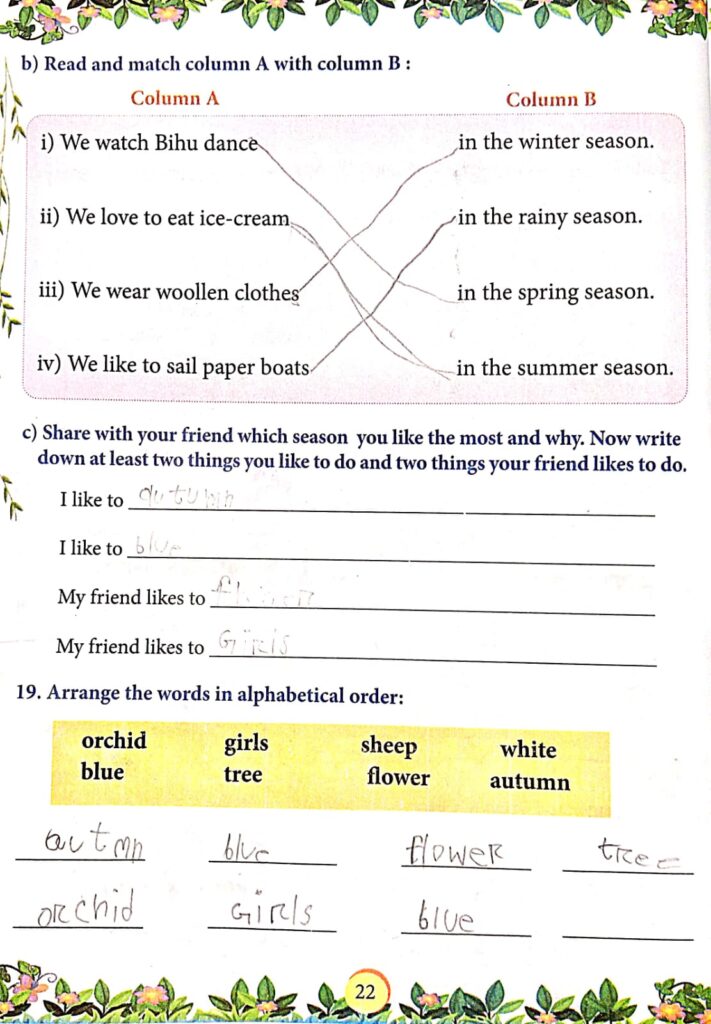 b) Read and match column A with column B :
Column A Column B
i) We watch Bihu dance in the winter season.
ii) We love to eat ice-cream in the rainy season.
iii) We wear woollen clothes in the spring season.
iv) We like to sail paper boats in the summer season.
c) Share with your friend which season you like the most and why. Now write
down at least two things you like to do and two things your friend likes to do.
I like to autumn
I like to blue
My friend likes to
My friend likes to Girls
19. Arrange the words in alphabetical order:
orchid girls sheep white
blue tree flower autumn
autmn blue flower tree
orchid Girls blue
22